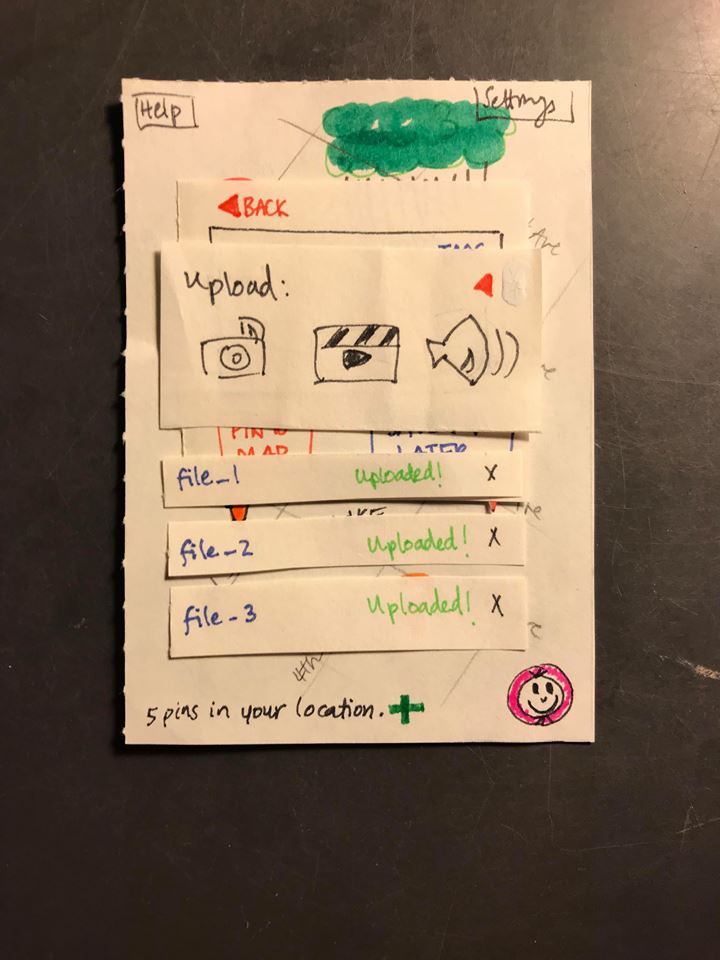 Help
Settings
BACK
TAGS
Upload:
PIN to
MAP
LATER
file_1 Uploaded! X
file_2 Uploaded! X
file_3 Uploaded! X
4th
5 pins in your location. +